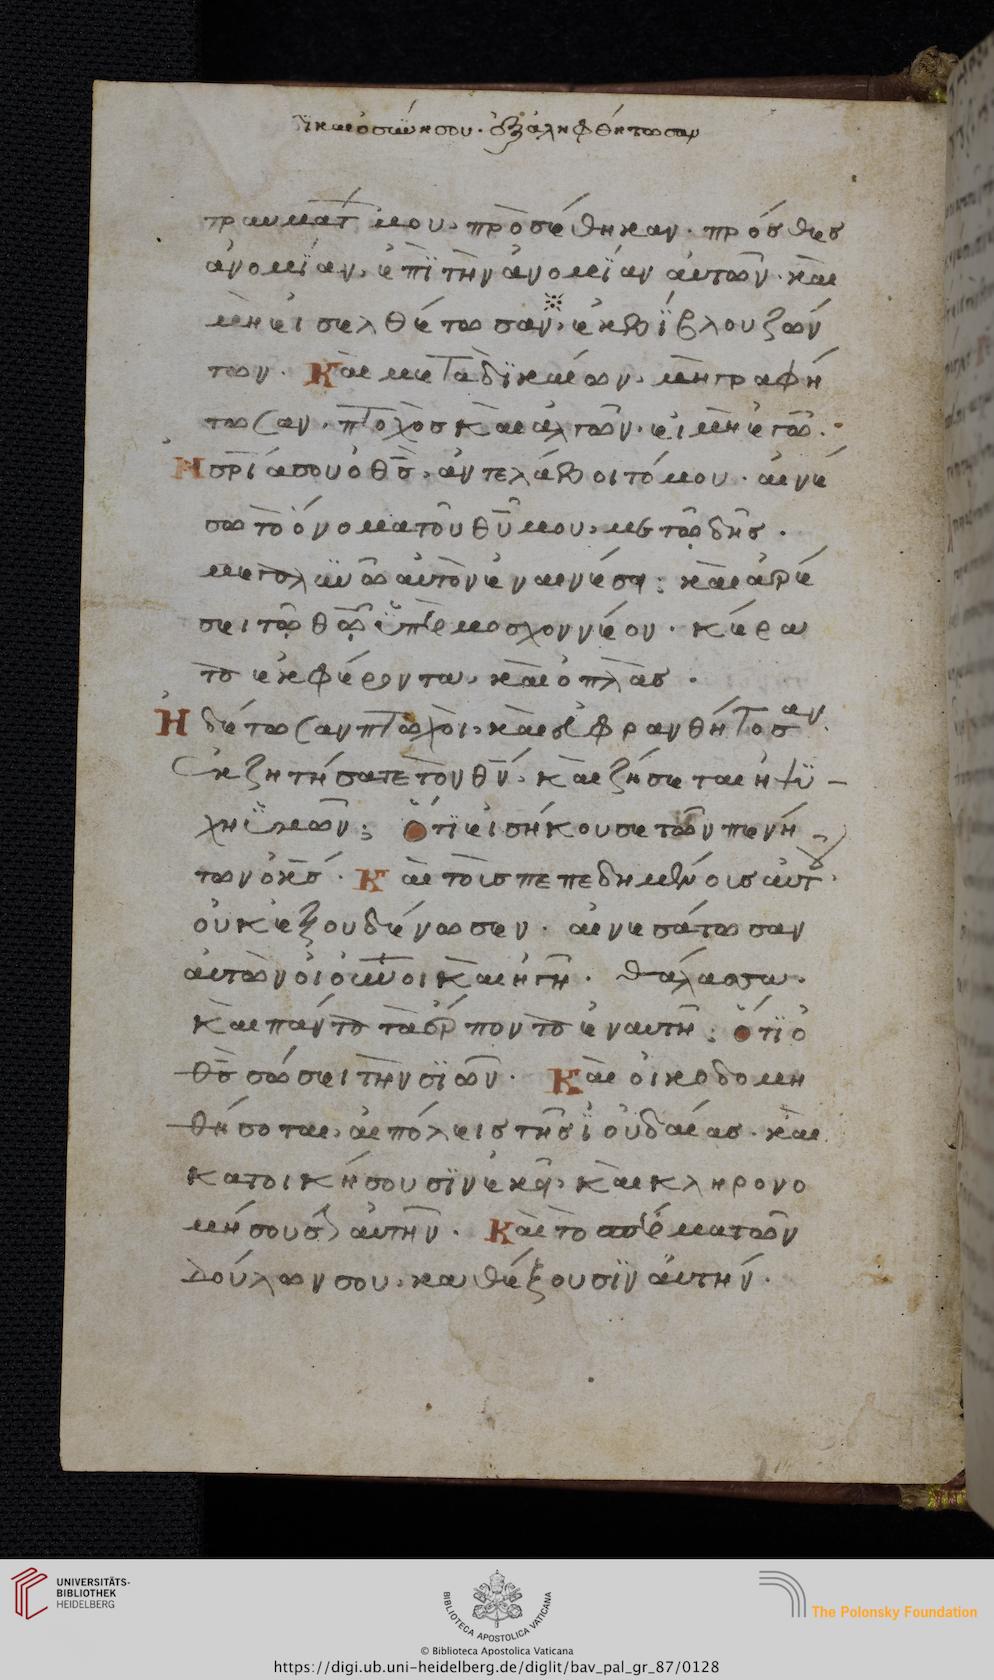 δικαιοσύνη σου· ἐξαλειφθήτωσαν
τραυμάτ μου, προσέθηκαν· πρόσθες
ἀνομίαν, ἐπὶ τὴν ἀνομίαν αὐτῶν· καὶ
μὴ εἰσελθέτωσαν, ἐκ βίβλου ζών
των. Καὶ μετὰ δικαίων, μὴ γραφή
τωσαν. πτοχὸς καὶ ἀλγῶν, εἰμὶ ἐγώ.
Ἡ σρία σου ὁ θς, ἀντελάβοιτό μου. αἰνέ
σω τὸ ὄνομα τοῦ θῦ μου, μετ ὠδῆς.
μεγαλυνῶ αὐτὸν ἐν αἰνέσει: καὶ ἀρέ
σει τῷ θῶ ὑπὲρ μόσχον νέον. κέρα
τα ἐκφέροντα, καὶ ὁπλὰς.
Ἠδέτωσαν πτωχοὶ, καὶ εὐφρανθήτοσαν.
Ἐκζητήσατε τὸν θν, καὶ ζήσεται ἡ ψυ-
χὴ ὑμῶν; Ὅτι εἰσήκουσε τῶν πενή
των ὁ κς. Καὶ τοὺς πεπεδημένοις αὐτοῦ
οὐκ ἐξουδένωσεν. αἰνεσάτωσαν
αὐτὸν οἱ οὐνοι καὶ ἡ γῆ. θάλασσα.
καὶ πάντα τὰ ἕρποντα ἐν αὐτῆ: ὅτι ὁ
θς σώσει τὴν σϊών. Καὶ οἰκοδομη
θήσοται, αἱ πόλεις τῆς ϊουδαίας. καὶ
κατοικήσουσϊν ἐκεῖ, καὶ κληρονο
μήσουσιν αὐτήν. Καὶ τὸ σπέρμα τῶν
δούλων σου, καθέξουσϊν αὐτήν.
UNIVERSITÄTS-
BIBLIOTHEK
HEIDELBERG
BIBLIOTECA APOSTOLICA VATICANA
The Polonsky Foundation
© Biblioteca Apostolica Vaticana
https://digi.ub.uni-heidelberg.de/diglit/bav_pal_gr_87/0128